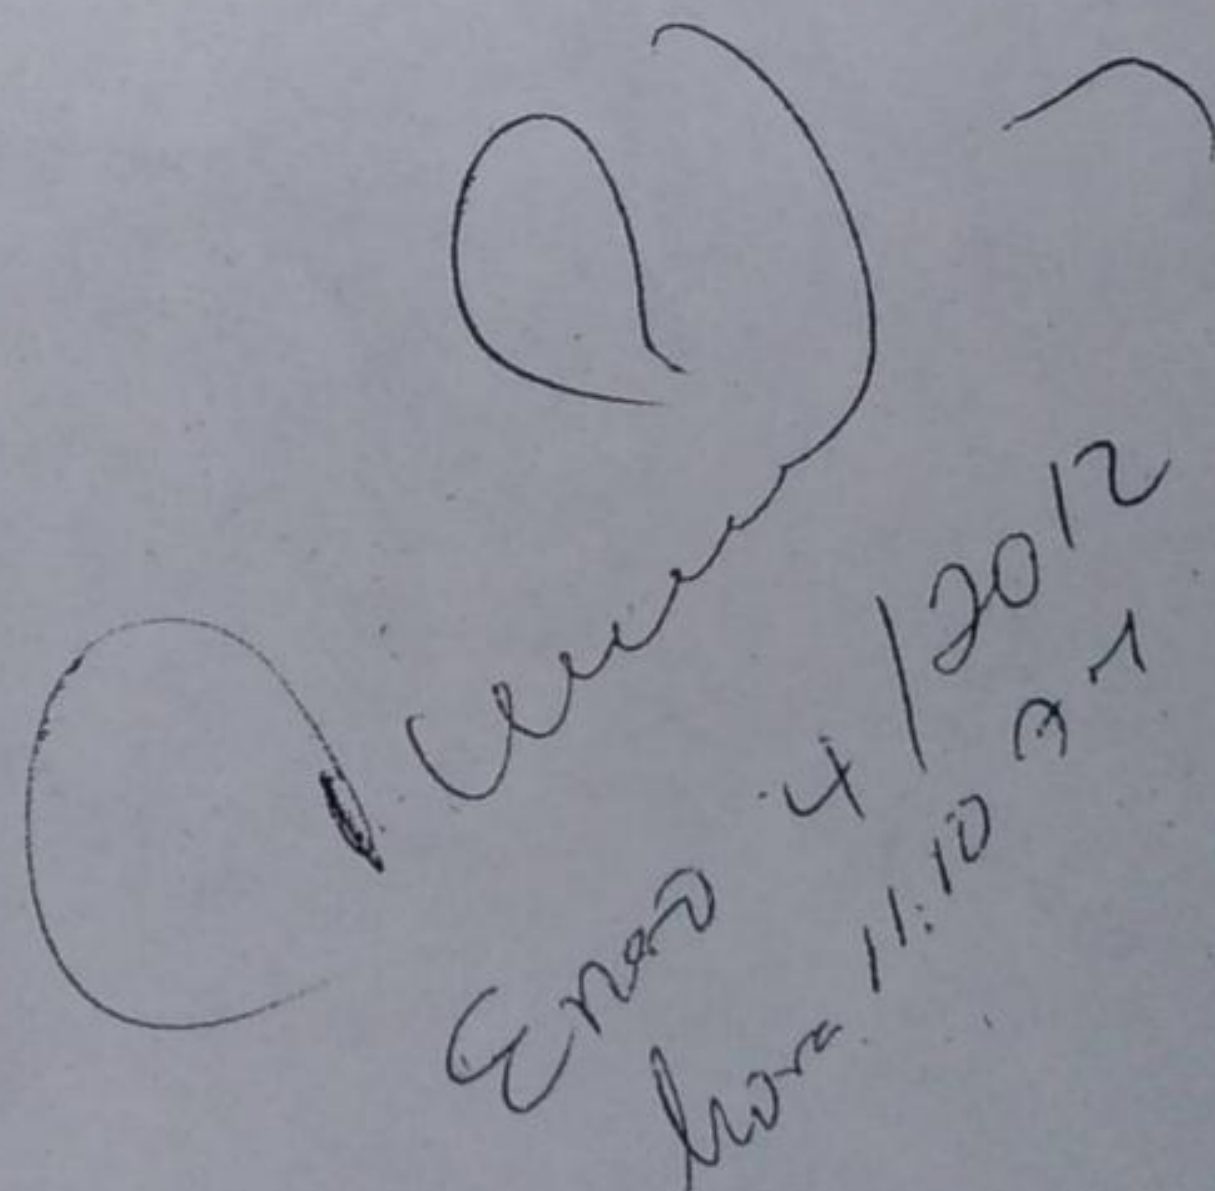 Enero 4/2012
hora 11:10 am